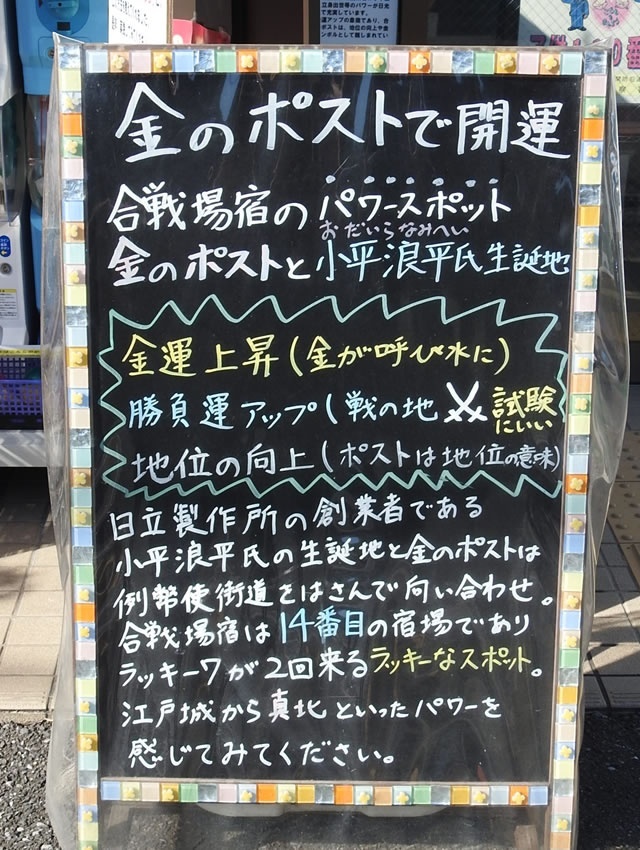 立身出世等のパワーが日光
で充実しています。
金のポストで開運
合戦場宿のパワースポット
おだいらなみへい
金のポストと小平浪平氏生誕地
金運上昇(金が呼び水に)
勝負運アップ(戦の地 試験にいい
地位の向上(ポストは地位の意味)
日立製作所の創業者である
小平浪平氏の生誕地と金のポストは
例幣使街道をはさんで向い合わせ。
合戦場宿は14番目の宿場であり
ラッキー7が2回来るラッキーなスポット。
江戸城から真北といったパワーを
感じてみてください。